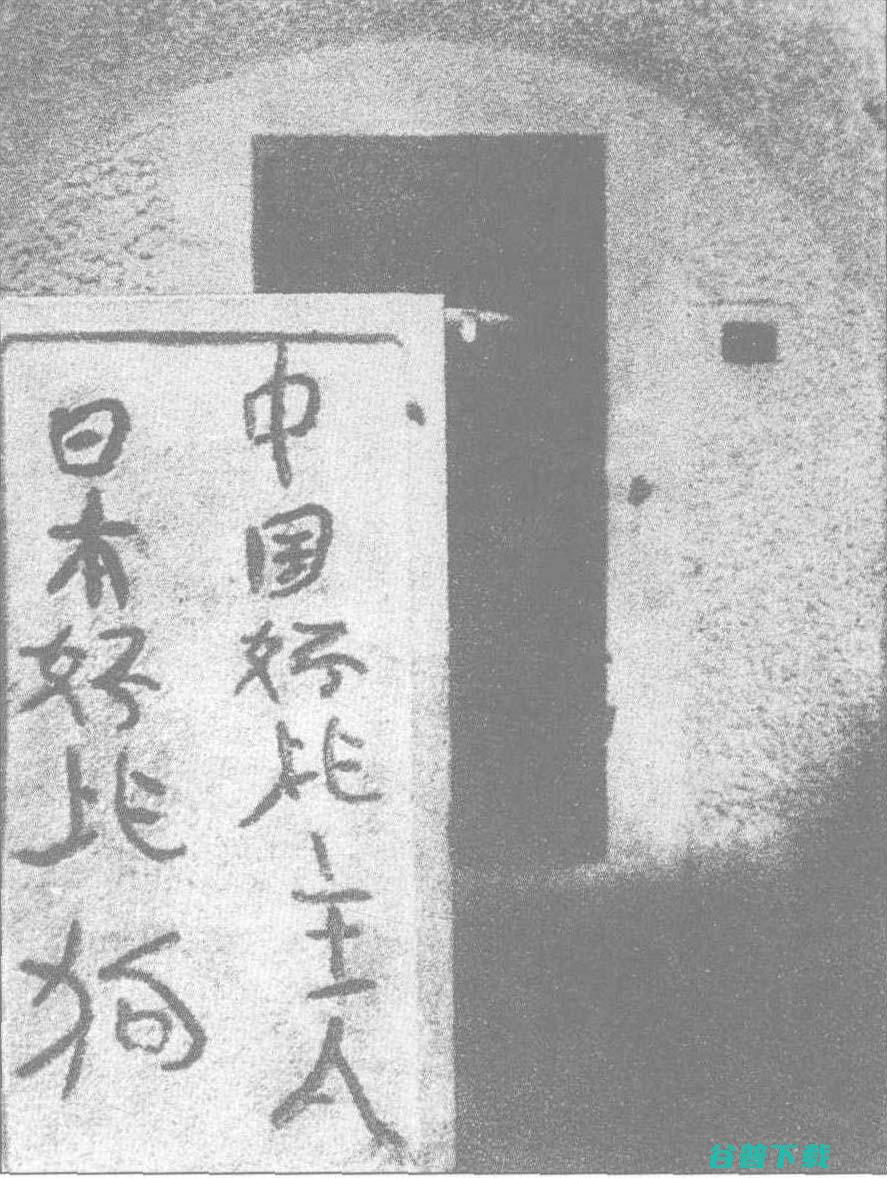 中国好比主人
日本好比狗
谷普下载